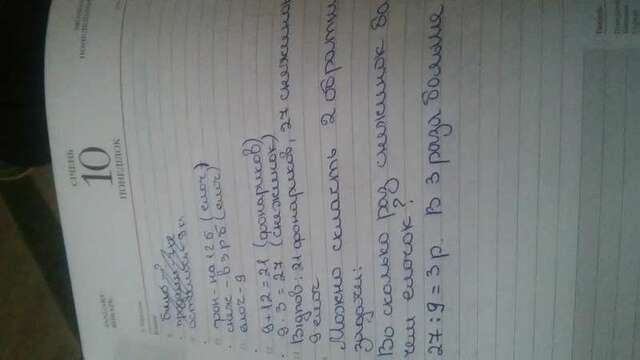 СІЧЕНЬ
10
ПОНЕДІЛОК
JANUARY
ЯНВАРЬ
ПОНЕДЕЛЬНИК
Було - ?
продали
остались - 9 к
фон - на 12 б (елоч)
сниж - в 3 р б (елоч)
елоч - 9
9 + 12 = 21 (фонариков)
9 · 3 = 27 (снежинок)
Відпов: 21 фонариков, 27 снежинок
9 елоч
Можно скласть 2 обратн
задачи:
Во сколько раз снежинок бо
чем елочок?
27 : 9 = 3 р. В 3 раза больше